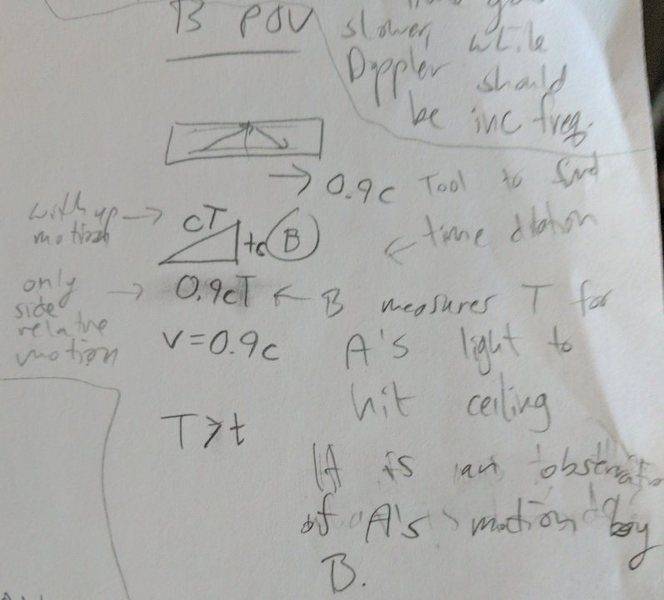 B POV
slower, while
Doppler should
be inc freq.
→ 0.9c Tool to find
time dilation
with up motion →
cT
tc
B
only side relative motion →
0.9cT ← B measures T for
v=0.9c A's light to
hit ceiling
T>t
It is an observation
of A's motion by
B.